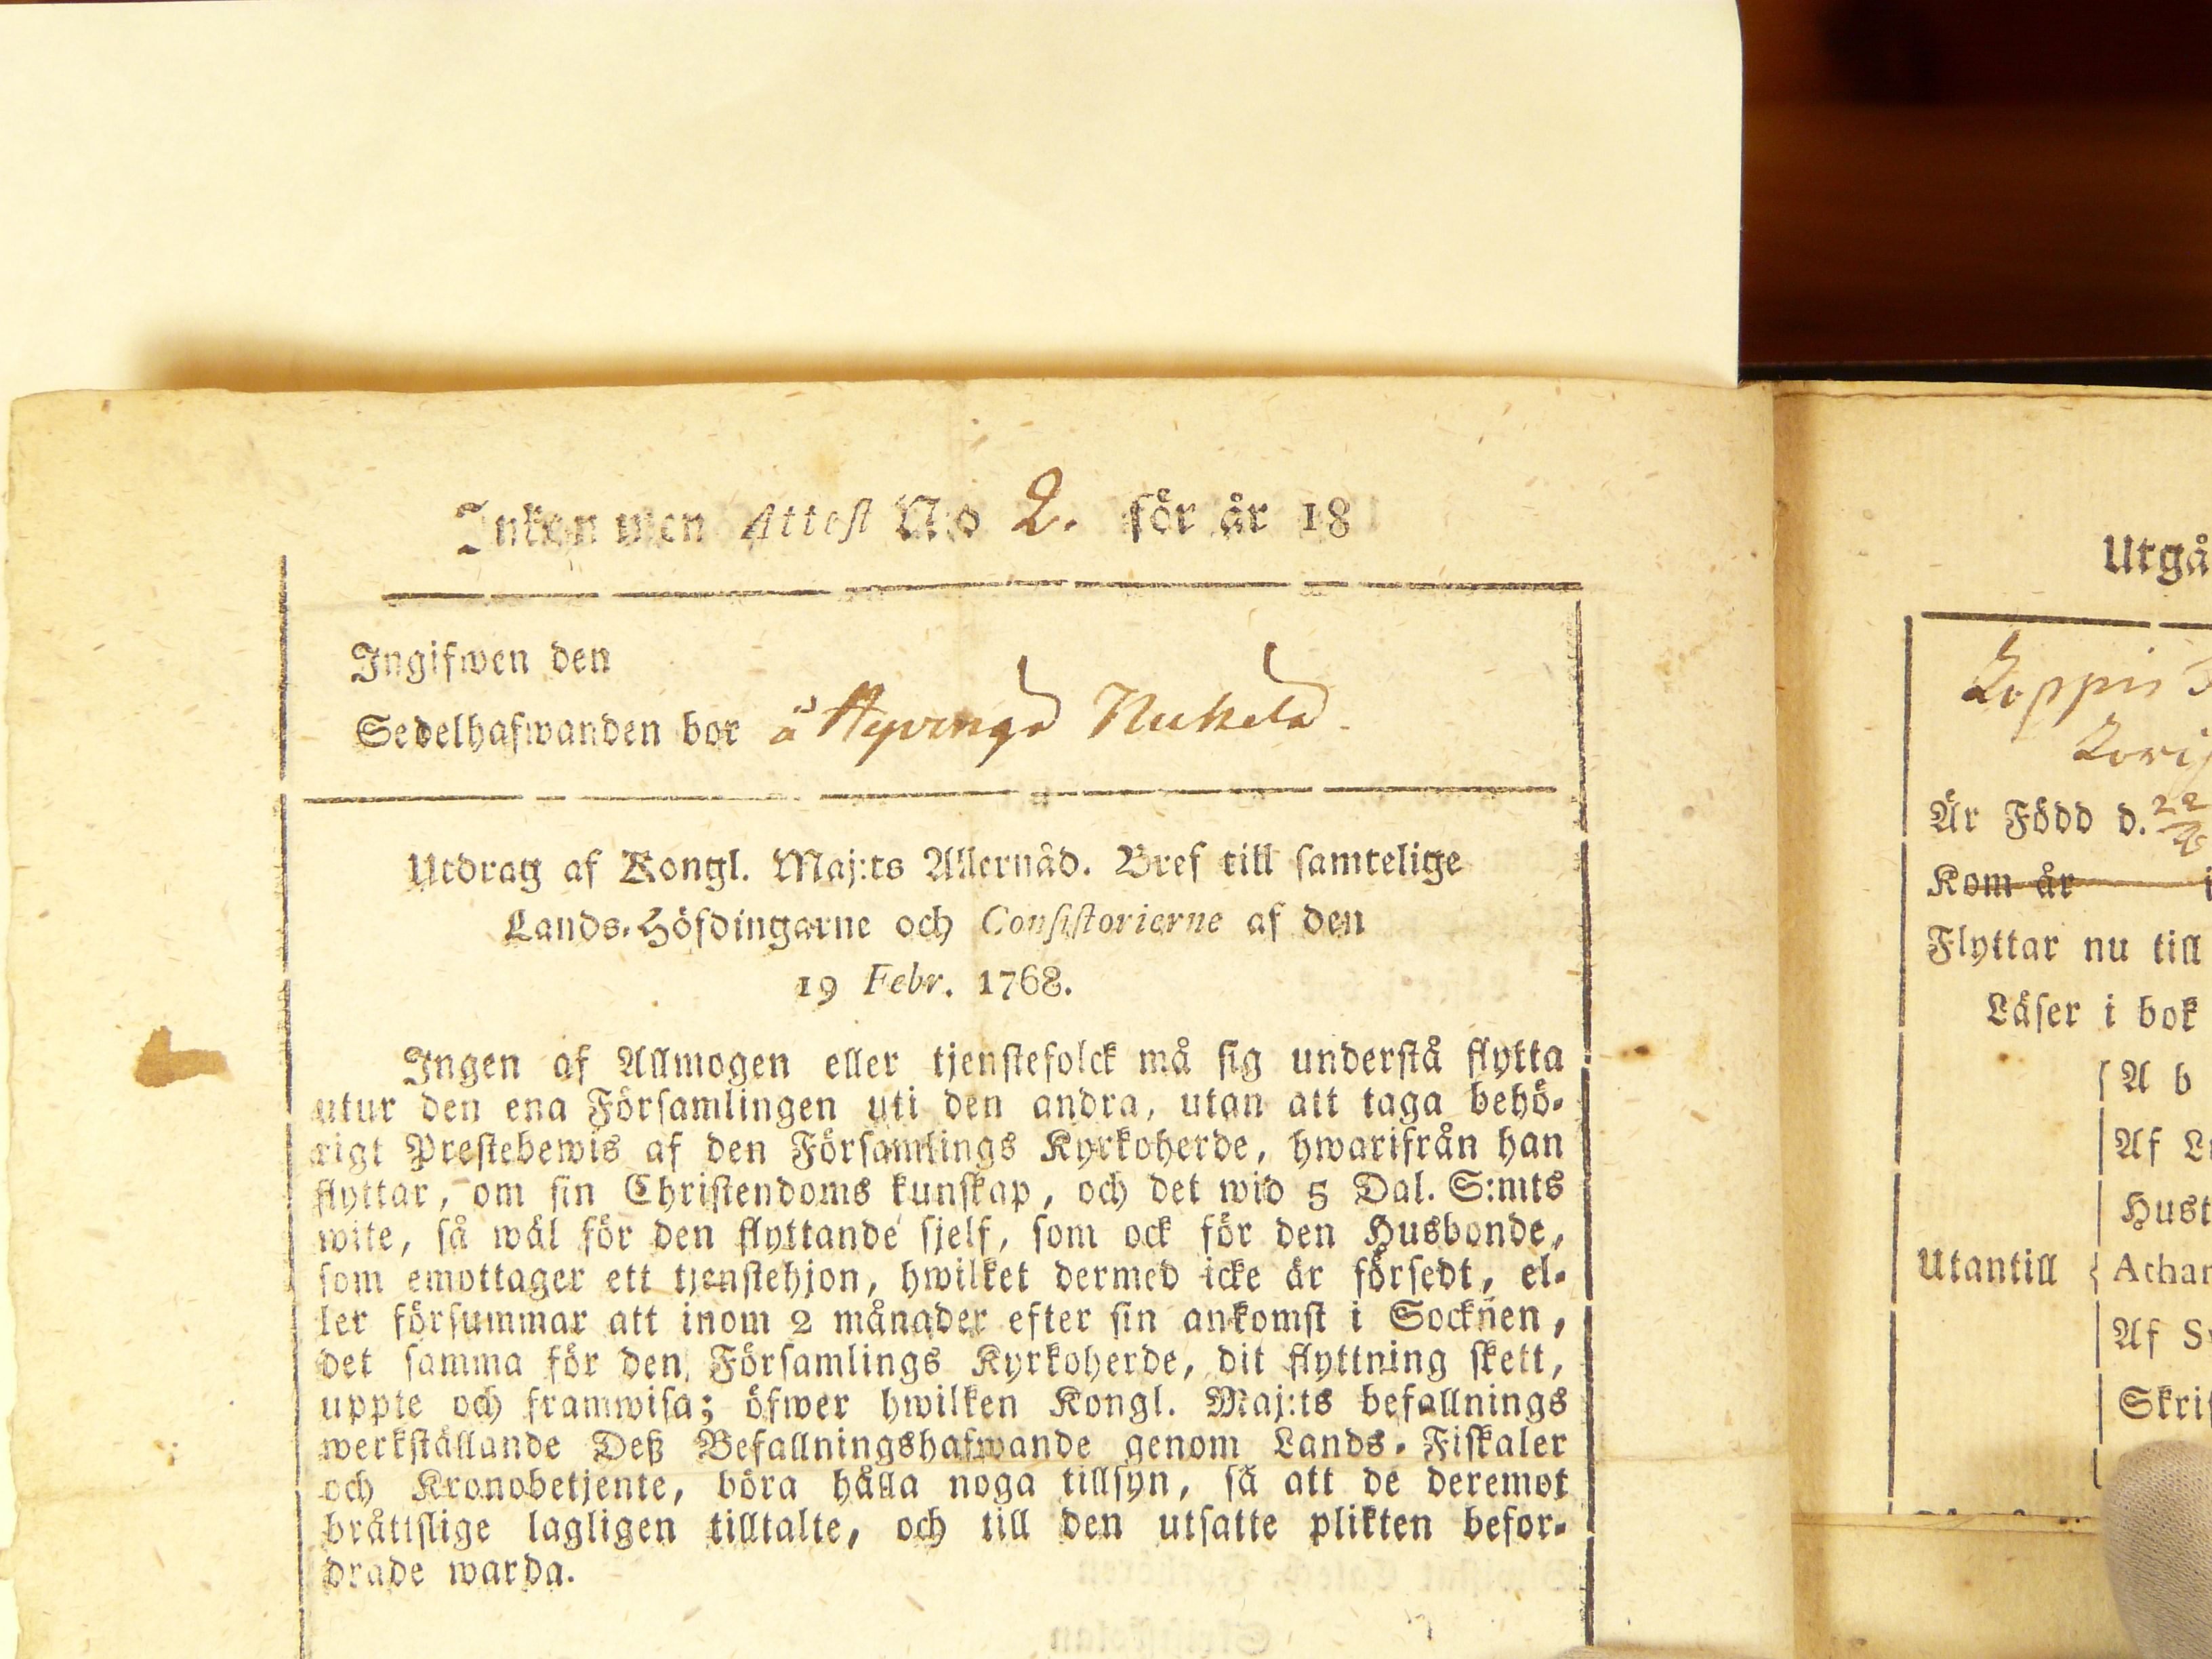 Inkommen Attest N:o 2. för år 18
Ingifwen den
Sedelhafwanden bor å Hyvinge
Utdrag af Kongl. Maj:ts Allernåd. Bref till samtelige
Lands-Höfdingarne och Consistorierne af den
19 Febr. 1768.
Ingen af Allmogen eller tjenstefolck må sig understå flytta
utur den ena Församlingen uti den andra, utan att taga behö-
rigt Prestebewis af den Församlings Kyrkoherde, hwarifrån han
flyttar, om sin Christendoms kunskap, och det wid 5 Dal. S:mts
wite, så wäl för den flyttande sjelf, som ock för den Husbonde,
som emottager ett tjenstehjon, hwilket dermed icke är försedt, el-
ler försummar att inom 2 månader efter sin ankomst i Socknen,
det samma för den Församlings Kyrkoherde, dit flyttning skett,
uppte och framwisa; öfwer hwilken Kongl. Maj:ts befallnings
werkställande Deß Befallningshafwande genom Lands-Fiskaler
och Kronobetjente, böra hålla noga tillsyn, så att de deremot
bråttslige lagligen tilltalte, och till den utsatte plikten befor-
drade warda.
Utgå
Koppis
Är Född d. 22
Kom år i
Flyttar nu till
Läser i bok
Utantill
A b
Af L
Hust
Athan
Af S
Skri